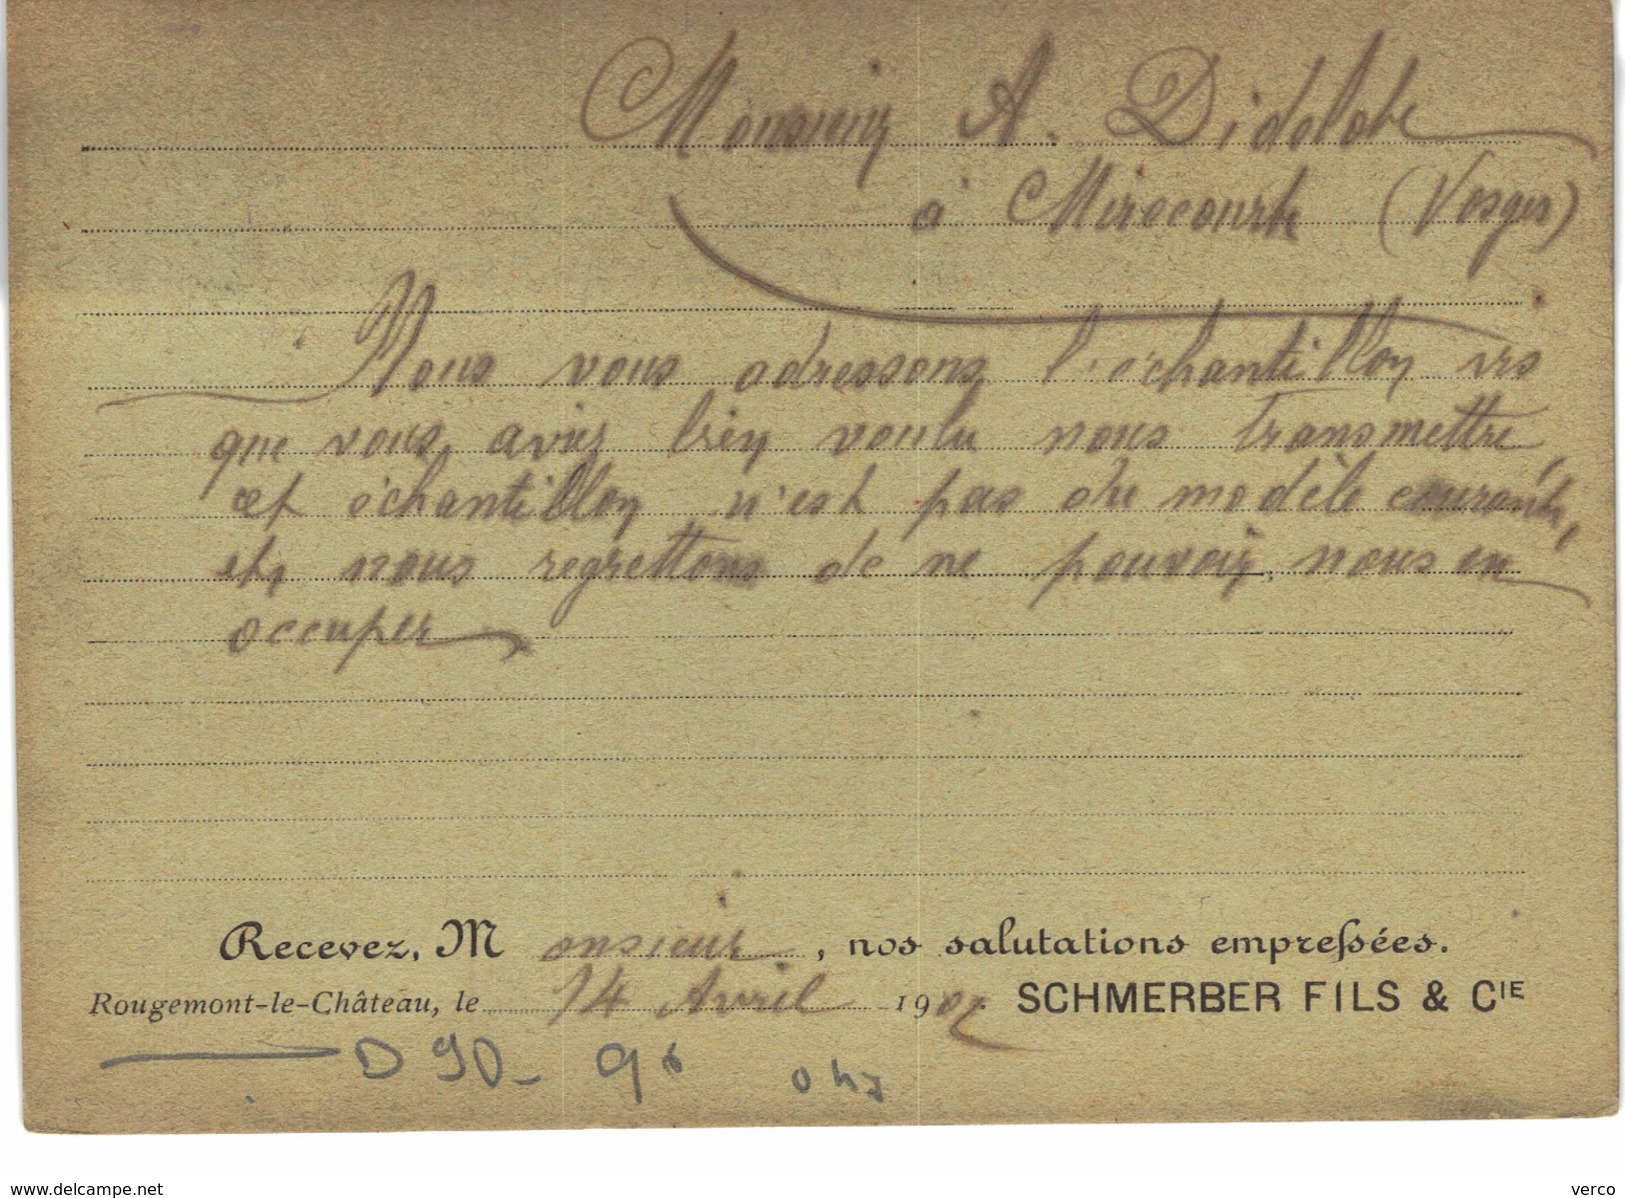 Monsieur A. Didelot
à Mirecourt (Vosges)
Nous vous adressons l'échantillon vis
que vous aviez bien voulu nous transmettre
cet échantillon n'est pas du modèle courant,
et nous regrettons de ne pouvoir nous en
occuper
Recevez, Monsieur, nos salutations empressées.
Rougemont-le-Château, le 14 Avril 1907 SCHMERBER FILS & CIE
D 90 - 9
www.delcampe.net verco